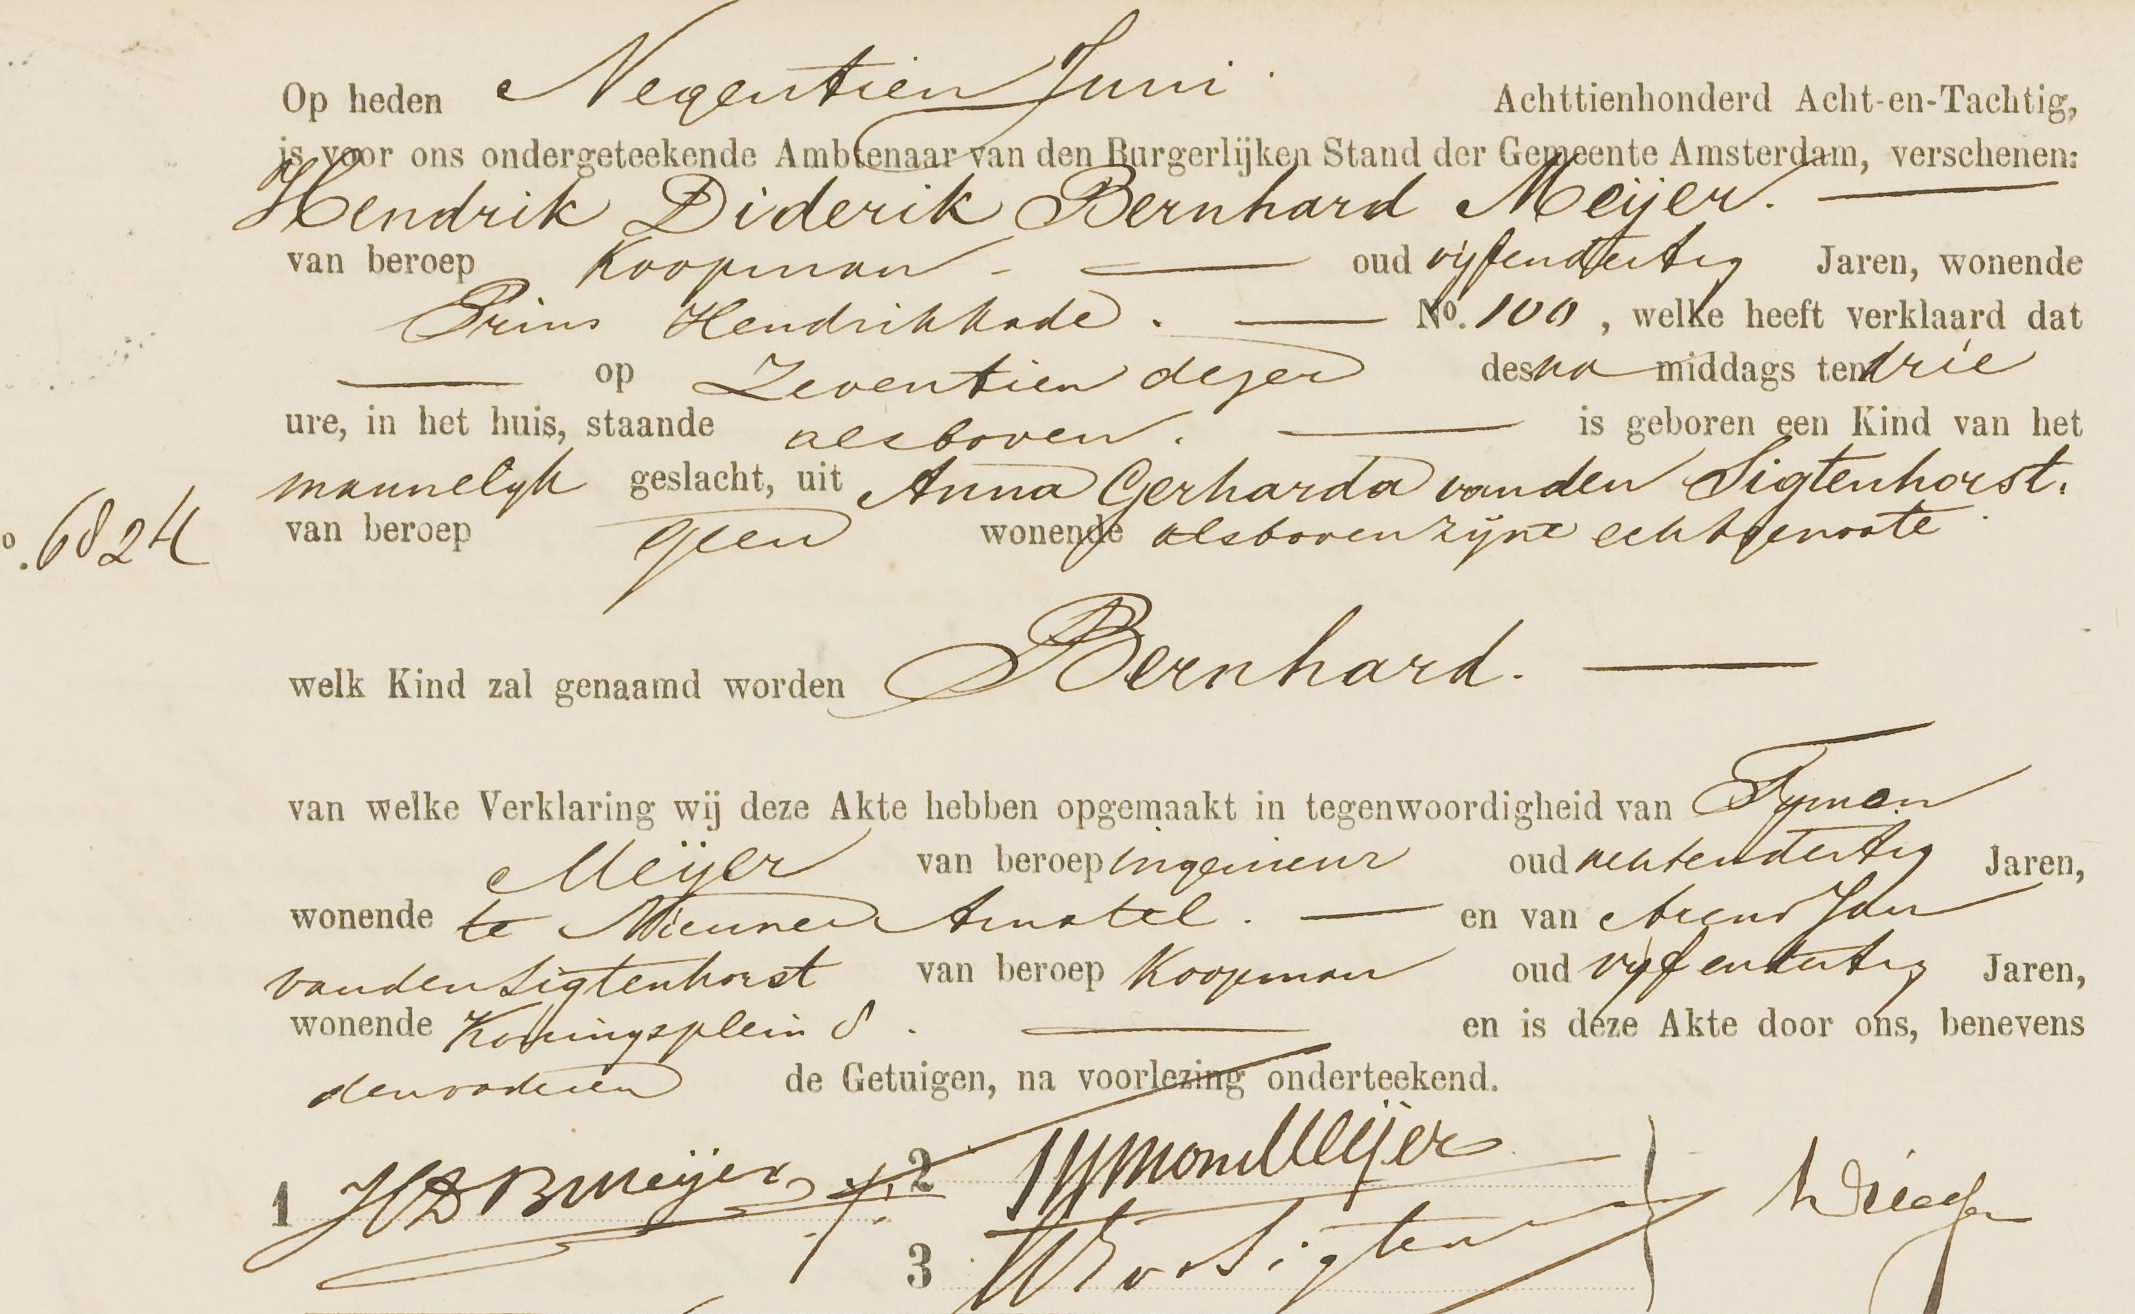 Op heden Negentien Juni Achttienhonderd Acht-en-Tachtig,
is voor ons ondergeteekende Ambtenaar van den Burgerlijken Stand der Gemeente Amsterdam, verschenen:
Hendrik Diderik Bernhard Meijer.
van beroep Koopman oud vijfendertig Jaren, wonende
Prins Hendrikkade. No. 100, welke heeft verklaard dat
op Zeventien dezer des na middags ten drie
ure, in het huis, staande alsboven. is geboren een Kind van het
mannelijk geslacht, uit Anna Gerharda van den Sigtenhorst.
o. 6824 van beroep geen wonende alsboven zijne echtgenoote
welk Kind zal genaamd worden Bernhard.
van welke Verklaring wij deze Akte hebben opgemaakt in tegenwoordigheid van Tymon
Meijer van beroep ingenieur oud achtendertig Jaren,
wonende te Nieuwer Amstel. en van Arend Jan
van den Sigtenhorst van beroep Koopman oud vijfendertig Jaren,
wonende Koningsplein 8. en is deze Akte door ons, benevens
den vader en de Getuigen, na voorlezing onderteekend.
1 HDBMeijer 2 Tymon Meijer
3